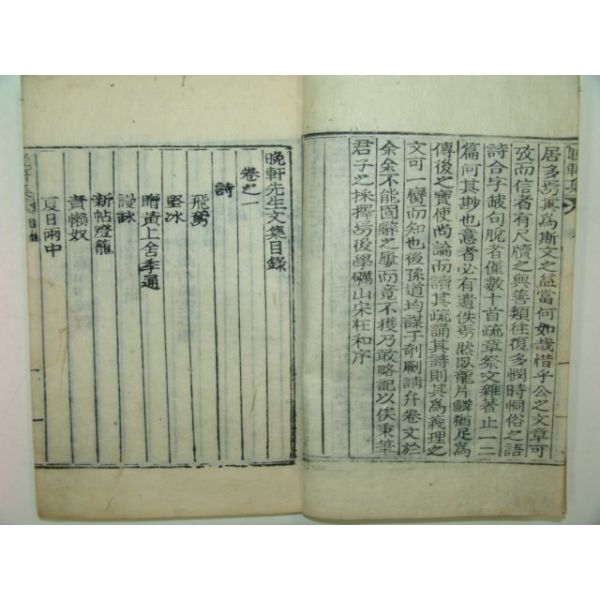 居多焉其爲斯文之益當何如哉惜乎公之文章可
攷而信者有尺牘之與善類往復多憫時恫俗之語
詩合字皷句脫者僅數十首疏章祭文雜著止一二
篇何其尠也意者必有遺佚焉然臥龍片鱗猶足爲
傳後之寶使尙論而讀其疏誦其詩則其爲義理之
文可一臠而知也後孫道均謀于剞劂請弁卷文於
余余不能固辭之屢而竟不獲乃敢略記以俟秉筆
君子之採擇焉後學礪山宋在和序
晚軒先生文集目錄
卷之一
詩
飛鴈
堅氷
贈黃上舍季通
謹詠
新帖燈籠
責懶奴
夏日雨中